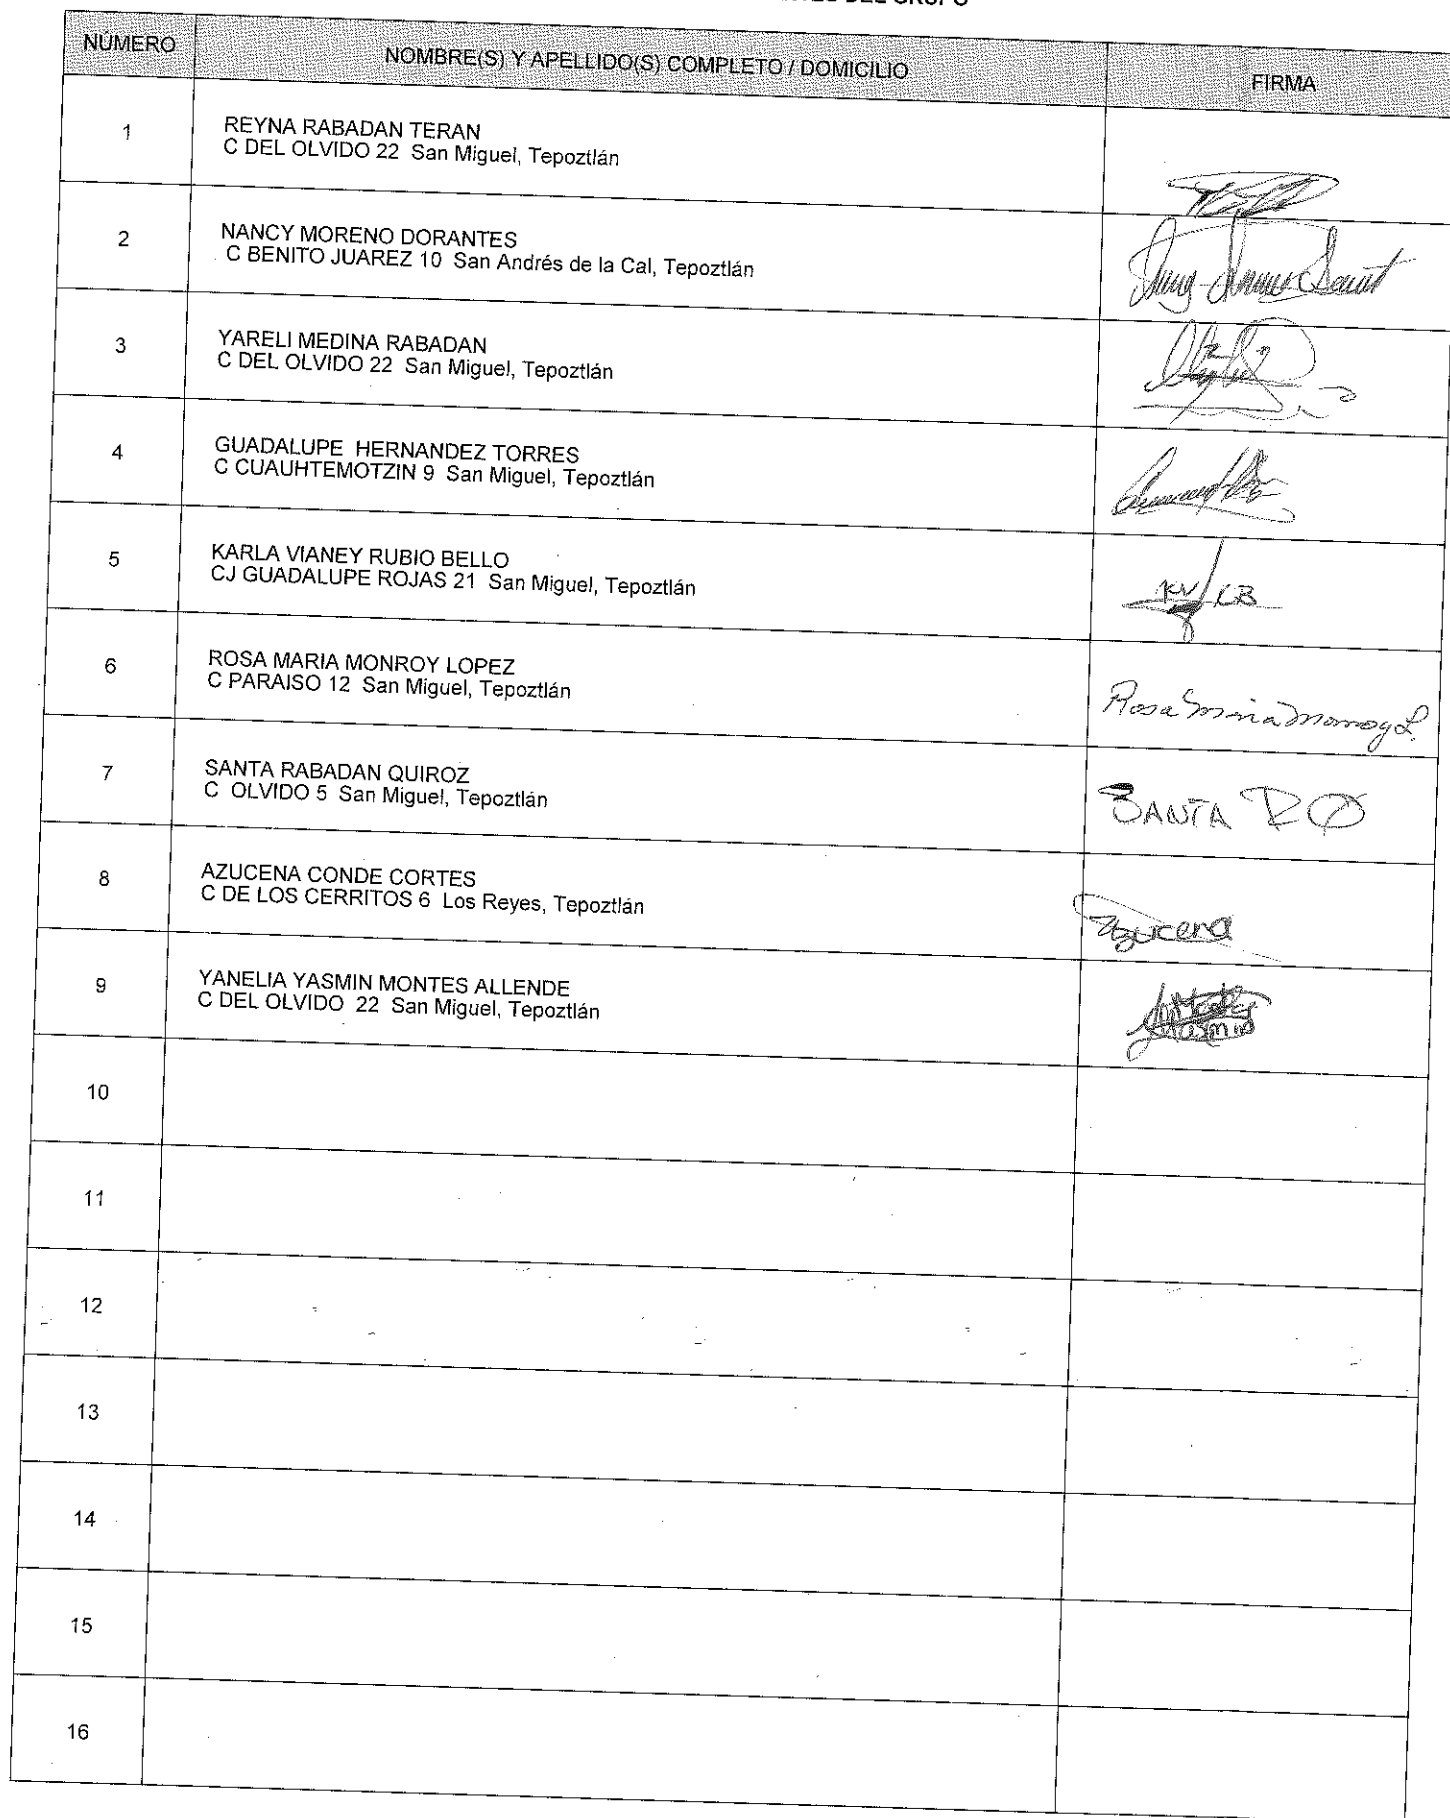 DEL GRUPO
NÚMERO NOMBRE(S) Y APELLIDO(S) COMPLETO / DOMICILIO FIRMA
1 REYNA RABADAN TERAN
C DEL OLVIDO 22 San Miguel, Tepoztlán
2 NANCY MORENO DORANTES
C BENITO JUAREZ 10 San Andrés de la Cal, Tepoztlán
3 YARELI MEDINA RABADAN
C DEL OLVIDO 22 San Miguel, Tepoztlán
4 GUADALUPE HERNANDEZ TORRES
C CUAUHTEMOTZIN 9 San Miguel, Tepoztlán
5 KARLA VIANEY RUBIO BELLO
CJ GUADALUPE ROJAS 21 San Miguel, Tepoztlán
6 ROSA MARIA MONROY LOPEZ
C PARAISO 12 San Miguel, Tepoztlán
Rosa Monroy L.
7 SANTA RABADAN QUIROZ
C OLVIDO 5 San Miguel, Tepoztlán
SANTA RQ
8 AZUCENA CONDE CORTES
C DE LOS CERRITOS 6 Los Reyes, Tepoztlán
Azucena
9 YANELIA YASMIN MONTES ALLENDE
C DEL OLVIDO 22 San Miguel, Tepoztlán
10
11
12
13
14
15
16